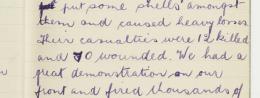 put some shells amongst
them and caused heavy losses
Their casualties were 12 killed
and 70 wounded. We had a
great demonstration on our
front and fired thousands of